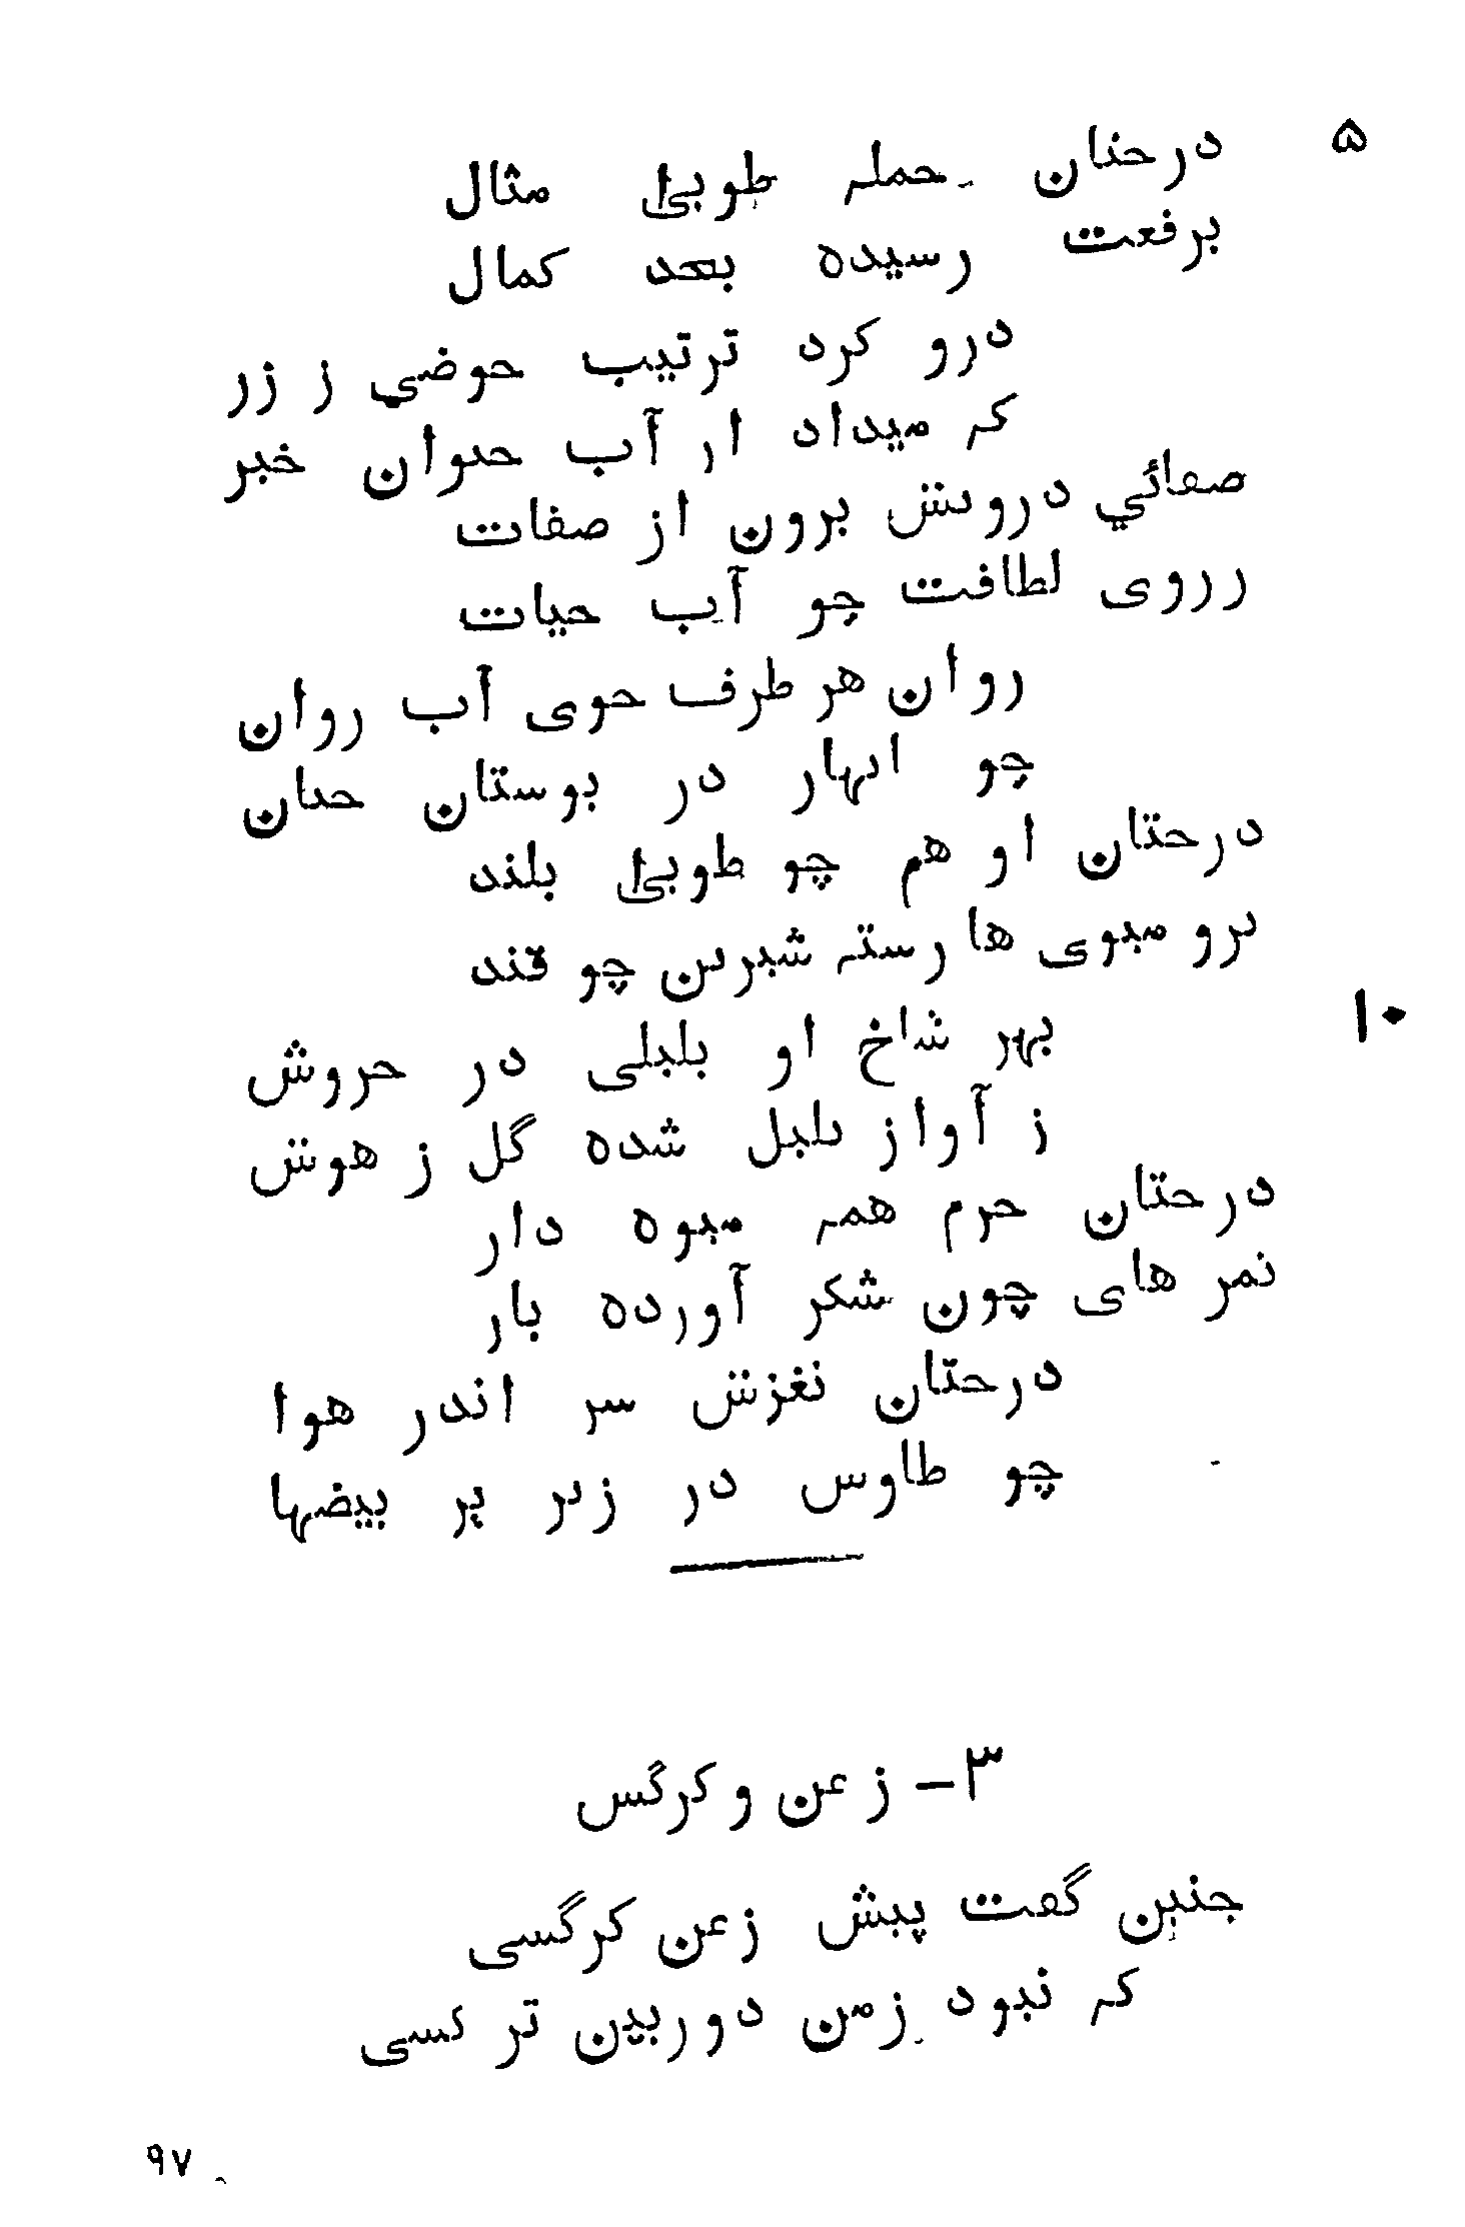 ۵
درختان جمله طوبیٰ مثال
برفعت رسیده بحد کمال
درو کرد ترتیب حوضی ز زر
که میداد از آب حیوان خبر
صفائي درونش برون از صفات
زروی لطافت چو آب حیات
روان هر طرف جوی آب روان
چو انهار در بوستان جنان
درختان او هم چو طوبیٰ بلند
برو میوی ها رسته شیرین چو قند
۱۰
بهر شاخ او بلبلی در خروش
ز آواز بلبل شده گل ز هوش
درختان خرم همه میوه دار
ثمر های چون شکر آورده بار
درختان نغزش سر اندر هوا
چو طاوس در زیر پر بیضها
۳- زعن و کرگس
چنین گفت پیش زعن کرگسی
که نبود زمن دوربین تر کسی
۹۷